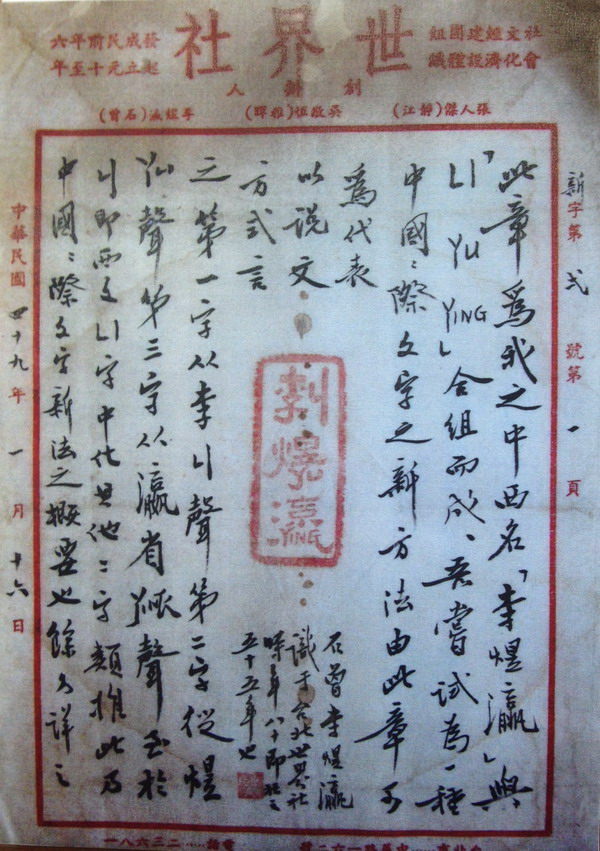 社文經建團組
會化濟設體織
世界社
發成民前年六
起立元十至年
創辦人
張人傑(靜江)　吳敬恆(稚暉)　李煜瀛(石曾)
新字第弍號第一頁
此章為我之中西名「李煜瀛」與
「LI YU YING」合組而成、吾嘗試為一種
中國〻際文字之新方法由此章可
為代表
以說文
方式言
之第一字从李LI聲第二字從煜
YU聲第三字从瀛省YING聲至於
LI即西文LI字中化其他二字類推此乃
中國〻際文字新法之概要也餘另詳之
石曾李煜瀛
識于台北世界社
時年八十即社之
五十五年也
中華民國四十九年一月十六日